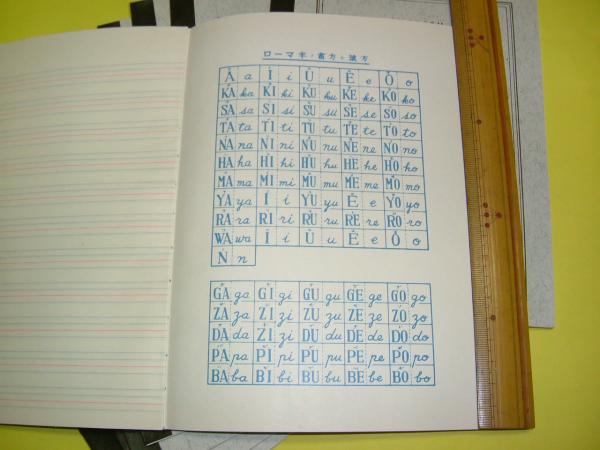 ローマ字ノ書方ト讀方
A a I i U u E e O o
KA ka KI ki KU ku KE ke KO ko
SA sa SI si SU su SE se SO so
TA ta TI ti TU tu TE te TO to
NA na NI ni NU nu NE ne NO no
HA ha HI hi HU hu HE he HO ho
MA ma MI mi MU mu ME me MO mo
YA ya I i YU yu E e YO yo
RA ra RI ri RU ru RE re RO ro
WA wa I i U u E e O o
N n
GA ga GI gi GU gu GE ge GO go
ZA za ZI zi ZU zu ZE ze ZO zo
DA da ZI zi DU du DE de DO do
PA pa PI pi PU pu PE pe PO po
BA ba BI bi BU bu BE be BO bo